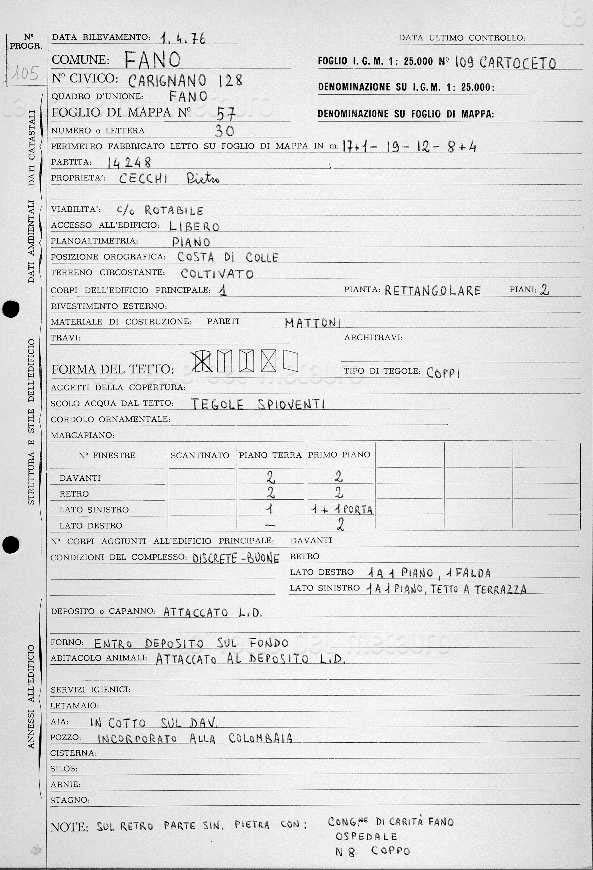 N° PROGR. 105
DATA RILEVAMENTO: 1.4.76 DATA ULTIMO CONTROLLO:
COMUNE: FANO FOGLIO I. G. M. 1: 25.000 N° 109 CARTOCETO
N° CIVICO: CARIGNANO 128 DENOMINAZIONE SU I.G.M. 1: 25.000:
QUADRO D'UNIONE: FANO
FOGLIO DI MAPPA N° 57 DENOMINAZIONE SU FOGLIO DI MAPPA:
NUMERO o LETTERA 30
PERIMETRO FABBRICATO LETTO SU FOGLIO DI MAPPA IN m: 17+1-19-12-8+4
PARTITA: 14248
PROPRIETA': CECCHI Pietro
DATI CATASTALI
VIABILITA': c/o ROTABILE
ACCESSO ALL'EDIFICIO: LIBERO
PLANOALTIMETRIA: PIANO
POSIZIONE OROGRAFICA: COSTA DI COLLE
TERRENO CIRCOSTANTE: COLTIVATO
DATI AMBIENTALI
CORPI DELL'EDIFICIO PRINCIPALE: 1 PIANTA: RETTANGOLARE PIANI: 2
RIVESTIMENTO ESTERNO:
MATERIALE DI COSTRUZIONE: PARETI MATTONI
TRAVI: ARCHITRAVI:
FORMA DEL TETTO: TIPO DI TEGOLE: COPPI
AGGETTI DELLA COPERTURA:
SCOLO ACQUA DAL TETTO: TEGOLE SPIOVENTI
CORDOLO ORNAMENTALE:
MARCAPIANO:
STRUTTURA E STILE DELL'EDIFICIO
N° FINESTRE SCANTINATO PIANO TERRA PRIMO PIANO
DAVANTI 2 2
RETRO 2 2
LATO SINISTRO 1 1 + 1 PORTA
LATO DESTRO – 2
N° CORPI AGGIUNTI ALL'EDIFICIO PRINCIPALE: DAVANTI
CONDIZIONI DEL COMPLESSO: DISCRETE-BUONE RETRO
LATO DESTRO 1 A 1 PIANO, 1 FALDA
LATO SINISTRO 1 A 1 PIANO, TETTO A TERRAZZA
DEPOSITO o CAPANNO: ATTACCATO L.D.
FORNO: ENTRO DEPOSITO SUL FONDO
ABITACOLO ANIMALI: ATTACCATO AL DEPOSITO L.D.
SERVIZI IGIENICI:
LETAMAIO:
AIA: IN COTTO SUL DAV.
POZZO: INCORPORATO ALLA COLOMBAIA
CISTERNA:
SILOS:
ARNIE:
STAGNO:
ANNESSI ALL'EDIFICIO
NOTE: SUL RETRO PARTE SIN. PIETRA CON: CONG.NE DI CARITÀ FANO
OSPEDALE
N 8 COPPO